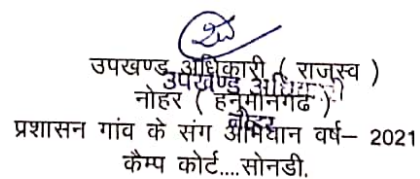 उपखण्ड अधिकारी ( राजस्व )
उपखण्ड अधिकारी
नोहर ( हनुमानगढ )
नोहर
प्रशासन गांव के संग अभियान वर्ष– 2021
कैम्प कोर्ट....सोनडी.